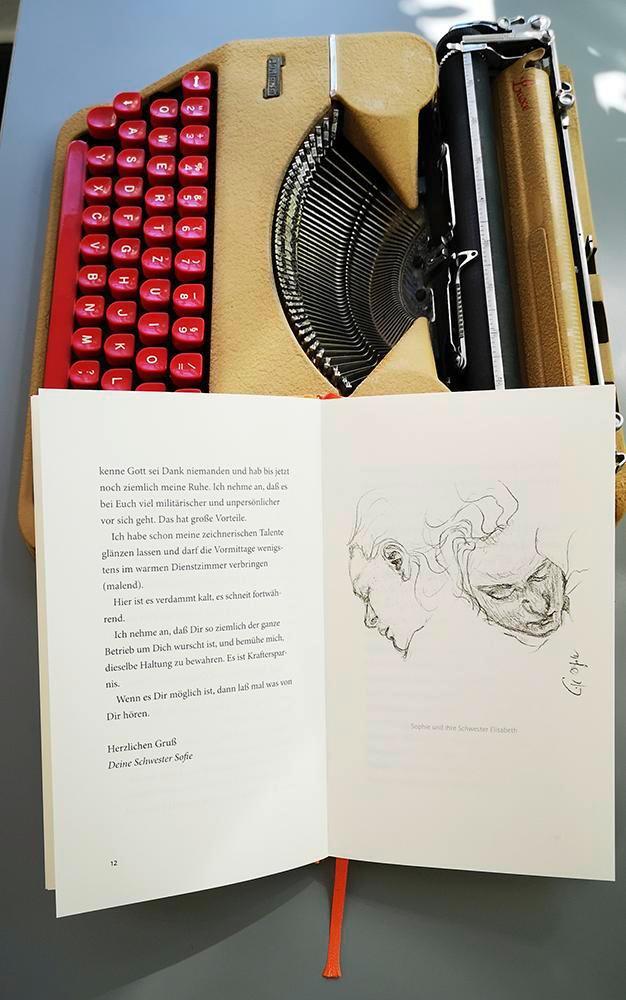 kenne Gott sei Dank niemanden und hab bis jetzt
noch ziemlich meine Ruhe. Ich nehme an, daß es
bei Euch viel militärischer und unpersönlicher
vor sich geht. Das hat große Vorteile.
Ich habe schon meine zeichnerischen Talente
glänzen lassen und darf die Vormittage wenigs-
tens im warmen Dienstzimmer verbringen
(malend).
Hier ist es verdammt kalt, es schneit fortwäh-
rend.
Ich nehme an, daß Dir so ziemlich der ganze
Betrieb um Dich wurscht ist, und bemühe mich,
dieselbe Haltung zu bewahren. Es ist Kraftersspar-
nis.
Wenn es Dir möglich ist, dann laß mal was von
Dir hören.
Herzlichen Gruß
Deine Schwester Sofie
12
Sophie und ihre Schwester Elisabeth
2"
3+
4
5
6
7
8
9
=/
Q
W
E
R
T
Z
U
I
O
A
S
D
F
G
H
J
K
L
Y
X
C
V
B
N
M
?